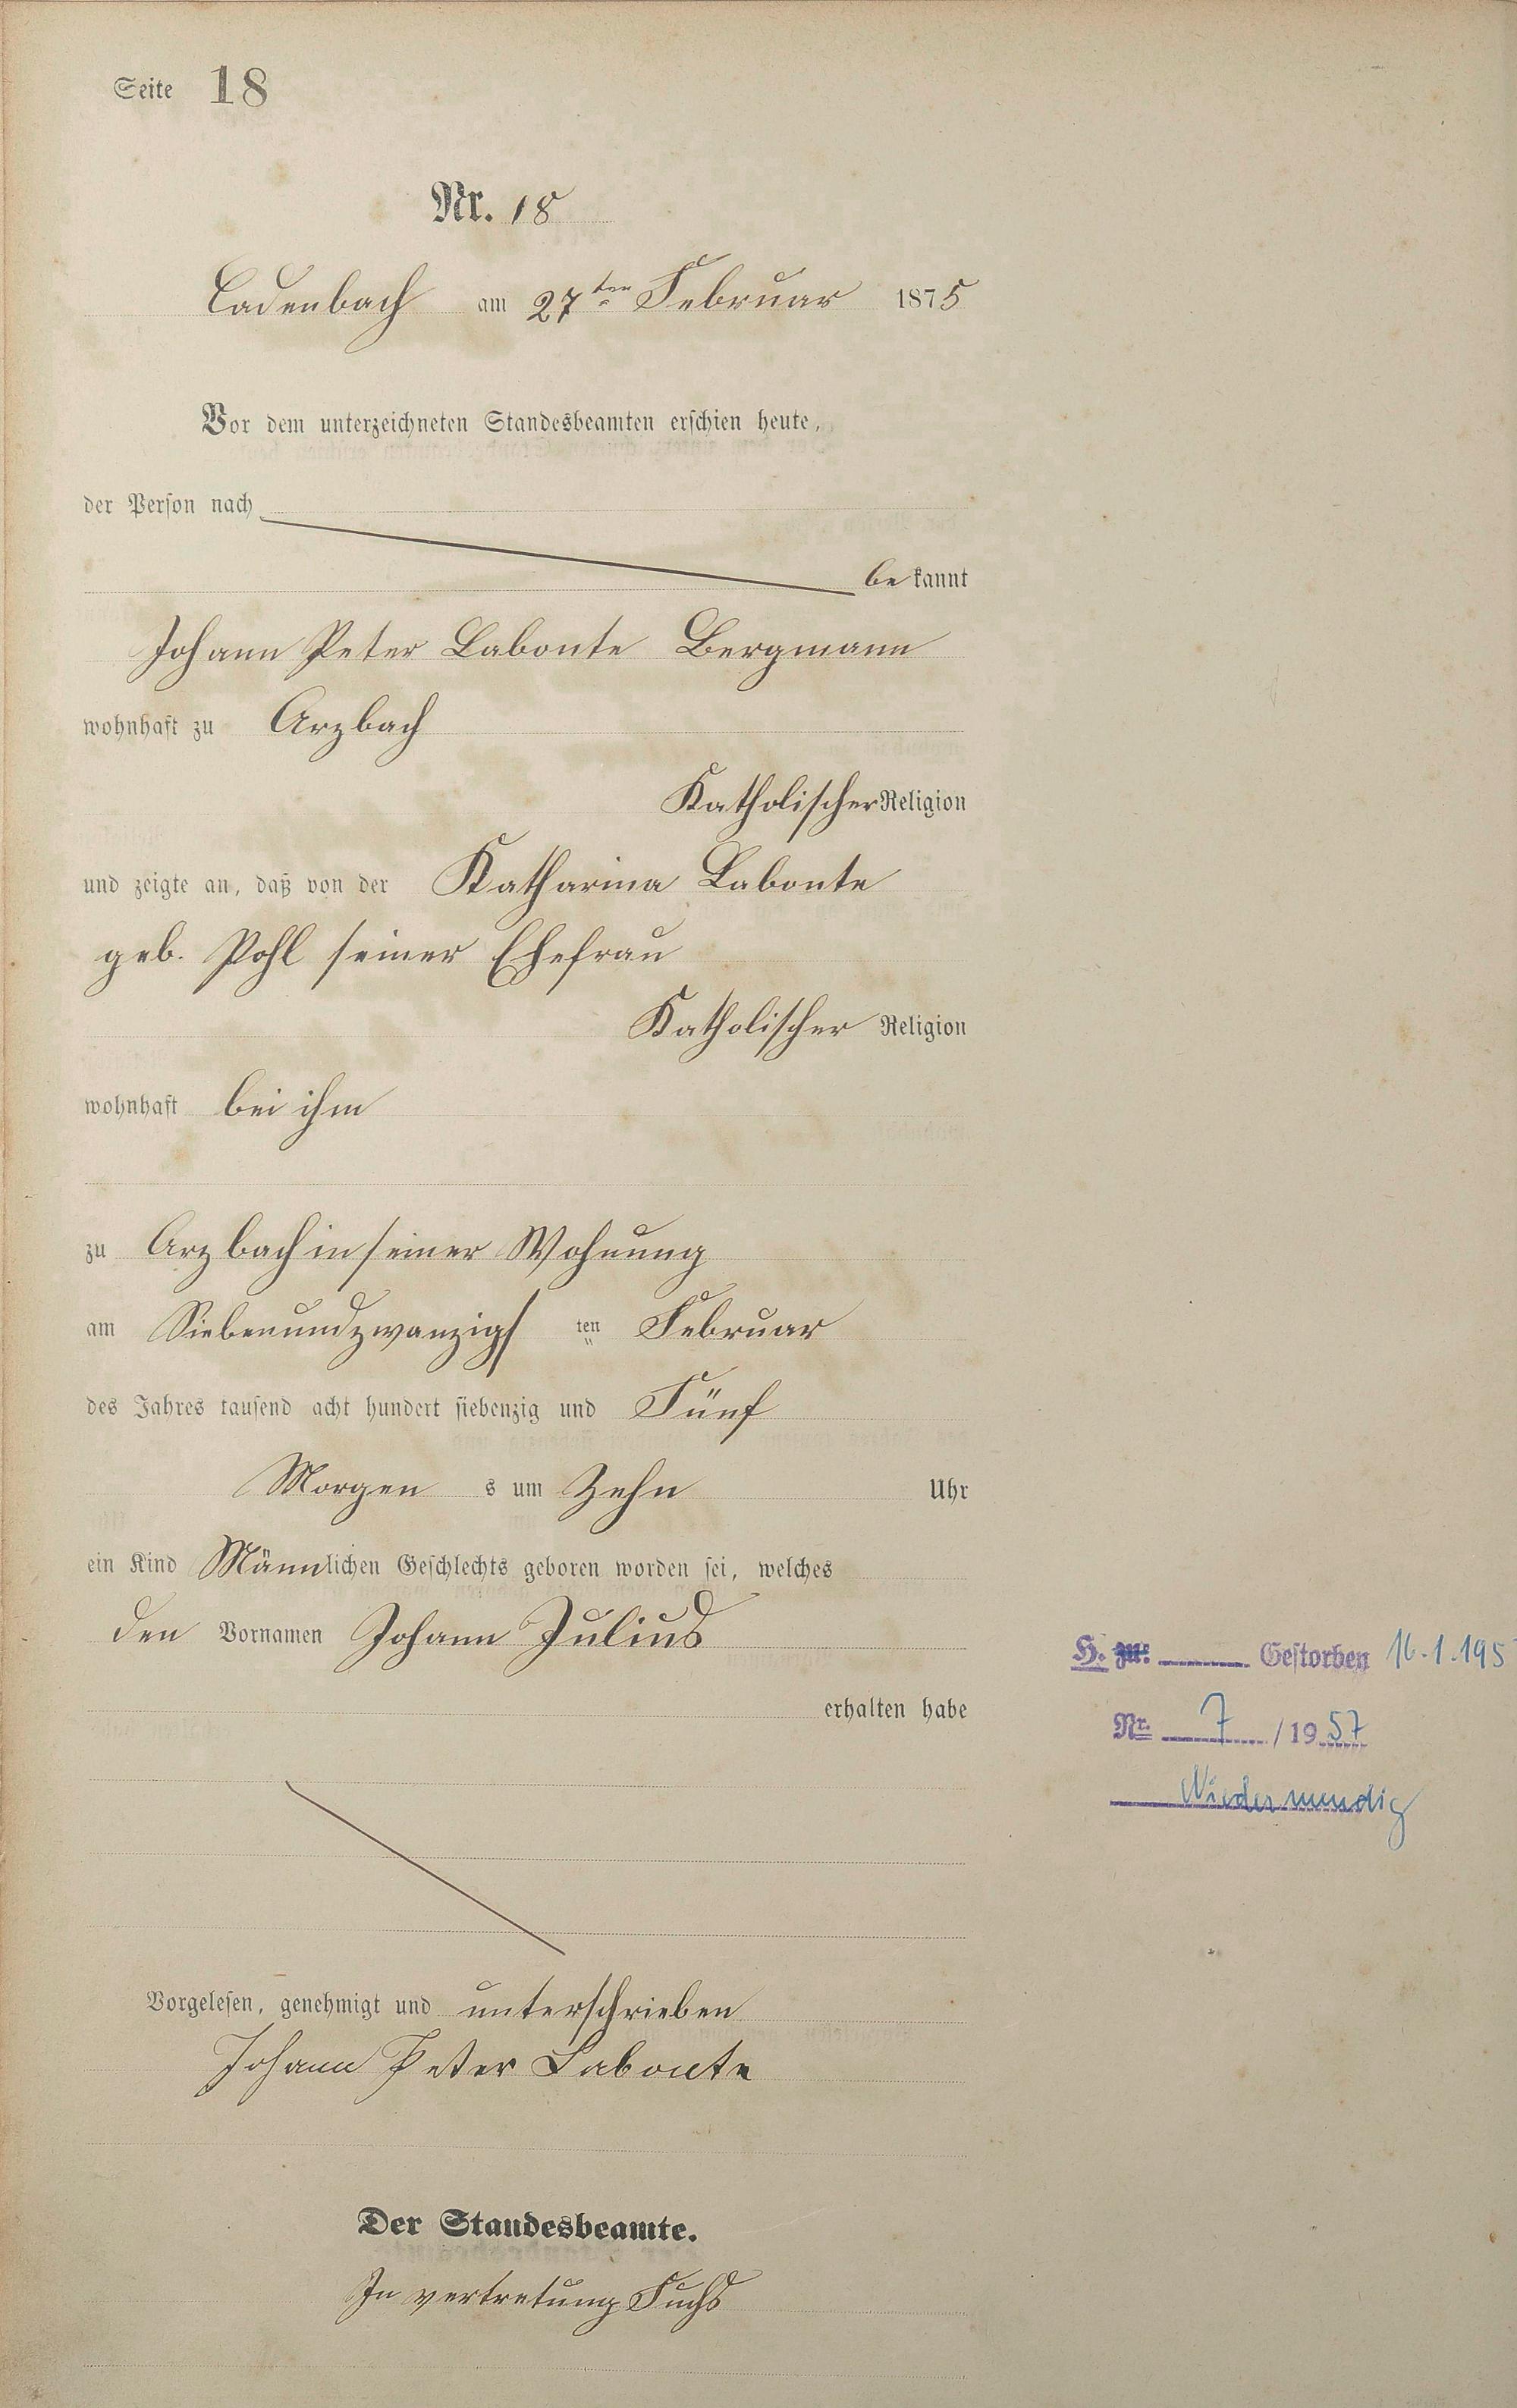 Seite 18
Nr. 18
Cadenbach am 27ten Februar 1875
Vor dem unterzeichneten Standesbeamten erschien heute,
der Person nach
be kannt
Johann Peter Labonte Bergmann
wohnhaft zu Arzbach
Katholischer Religion
und zeigte an, daß von der Katharina Labonte
geb. Pohl seiner Ehefrau
Katholischer Religion
wohnhaft bei ihm
zu Arzbach in seiner Wohnung
am Siebenundzwanzigs ten Februar
des Jahres tausend acht hundert siebenzig und Fünf
Morgen s um Zehn Uhr
ein Kind Männlichen Geschlechts geboren worden sei, welches
den Vornamen Johann Julius
erhalten habe
H. zu: Gestorben 16.1.195
Nr. 7 / 1957
Niedermendig
Vorgelesen, genehmigt und unterschrieben
Johann Peter Labonte
Der Standesbeamte.
In vertretung Fuchs